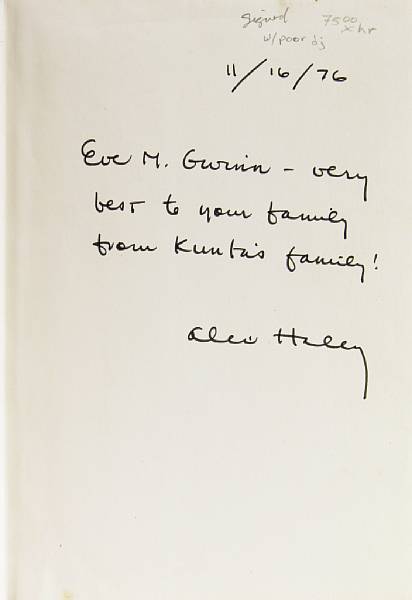 Signed 7500
w/poor dj
11/16/76
Eve M. Gwinn – very
best to your family
from Kunta's family!
Alex Haley